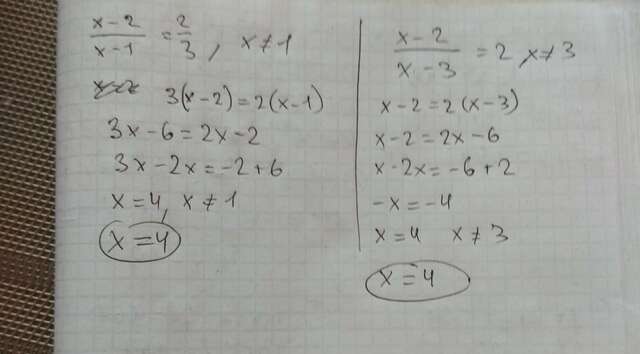 (x-2)/(x-1) = 2/3, x≠1
3(x-2)=2(x-1)
3x-6=2x-2
3x-2x=-2+6
x=4, x≠1
x=4
(x-2)/(x-3) = 2, x≠3
x-2=2(x-3)
x-2=2x-6
x-2x=-6+2
-x=-4
x=4 x≠3
x=4